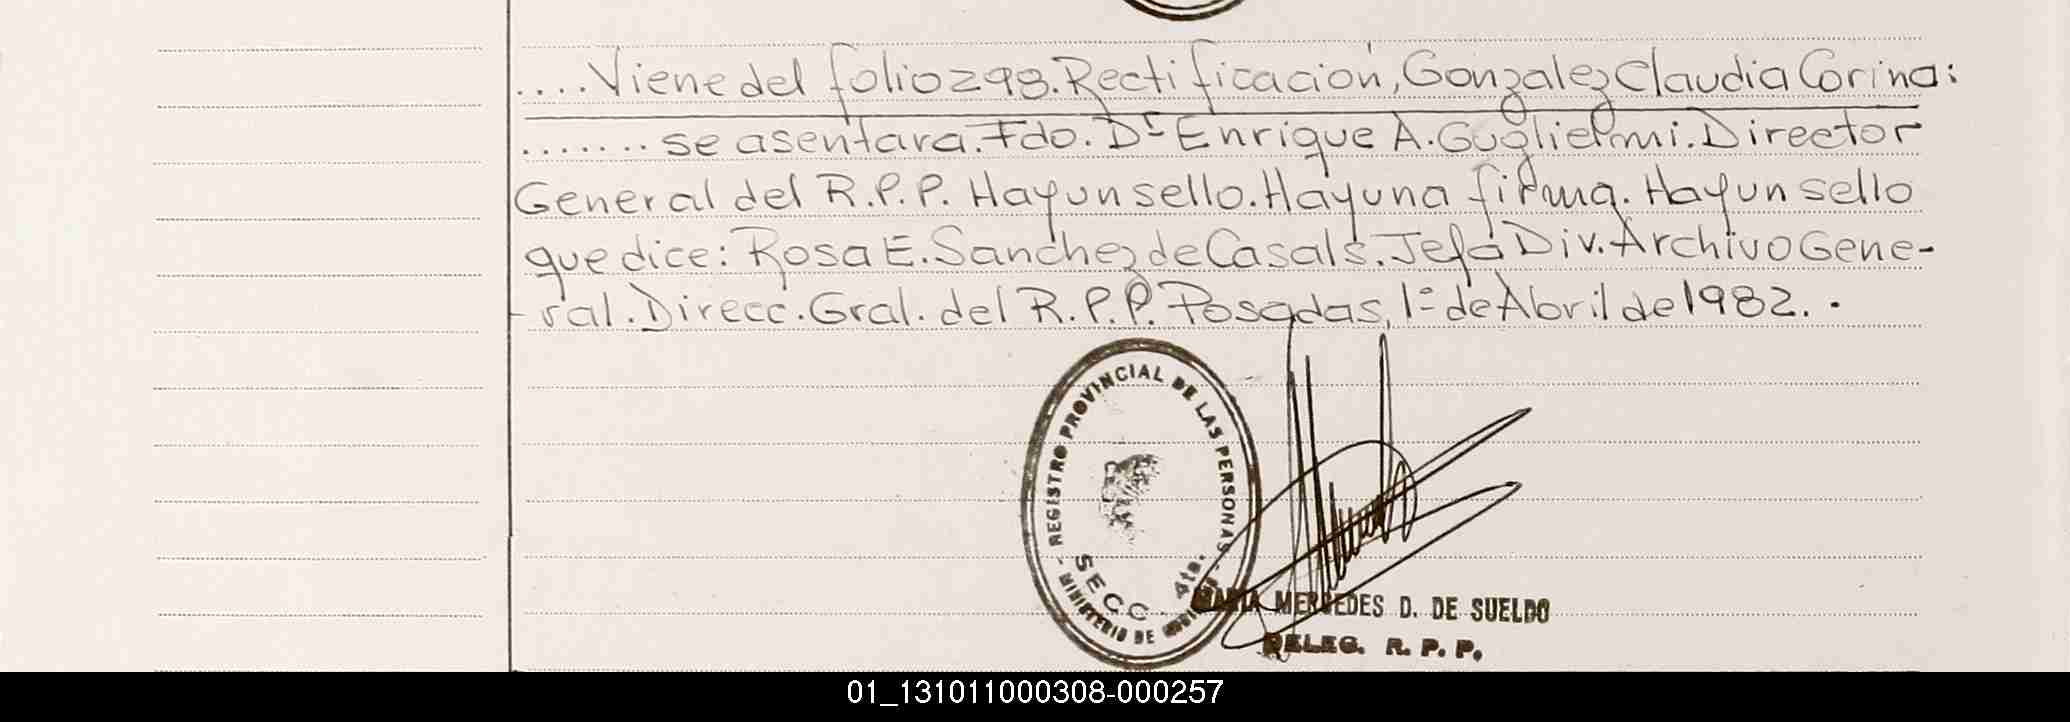 ....Viene del folio 298. Rectificación, Gonzalez Claudia Corina:
.......se asentara. Fdo. Dr Enrique A. Guglielmi. Director
General del R.P.P. Hay un sello. Hay una firma. Hay un sello
que dice: Rosa E. Sanchez de Casals. Jefa Div. Archivo Gene-
-ral. Direcc. Gral. del R.P.P. Posadas, 1º de Abril de 1982. .
REGISTRO PROVINCIAL DE LAS PERSONAS -
MINISTERIO DE
SECC. 4ta.
MARIA MERCEDES D. DE SUELDO
DELEG. R. P. P.
01_131011000308-000257